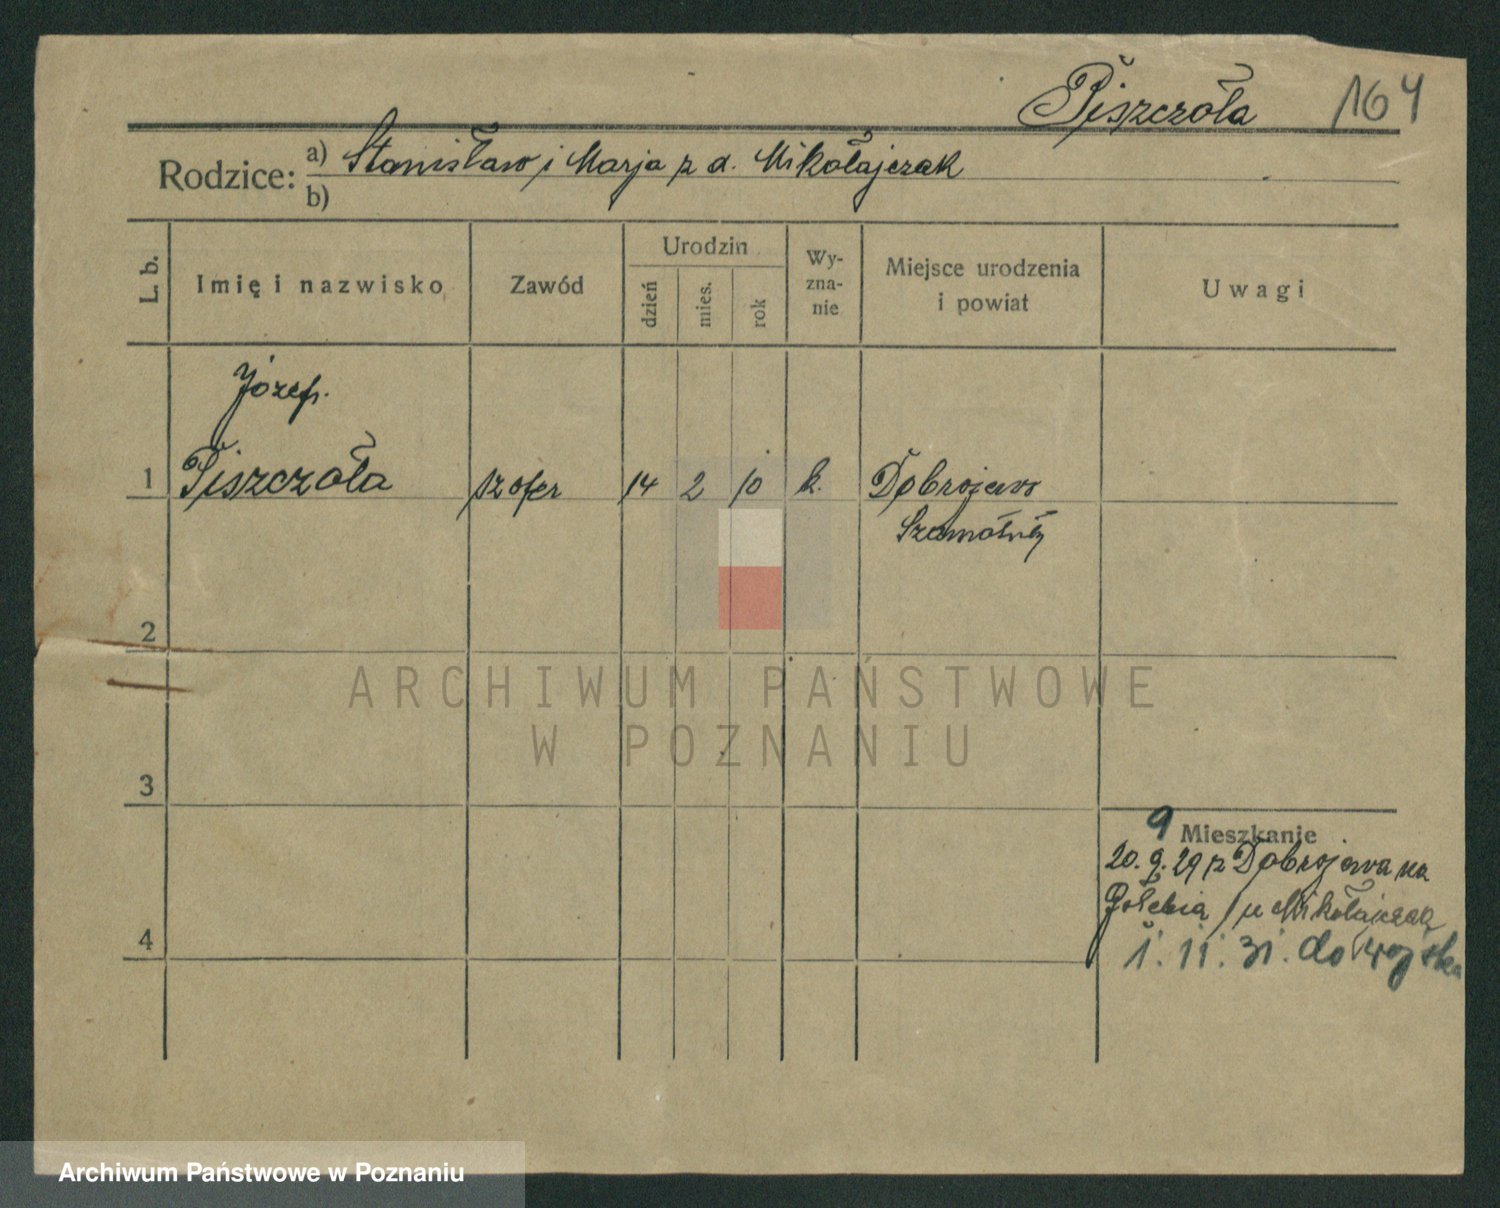 Piszczoła 164
Rodzice: a) Stanisław i Marja z d. Mikołajczak
b)
L. b.
Imię i nazwisko
Zawód
Urodzin
dzień
mies.
rok
Wy-
zna-
nie
Miejsce urodzenia
i powiat
Uwagi
Józef.
1 Piszczoła szofer 14 2 10 k. Dobrojewo
Szamotuły
2
ARCHIWUM PAŃSTWOWE
W POZNANIU
3
9 Mieszkanie
20. 9. 29 z Dobrojewa na
Gołebia u Mikołajczak
4
1. 11. 31. do wojska
Archiwum Państwowe w Poznaniu